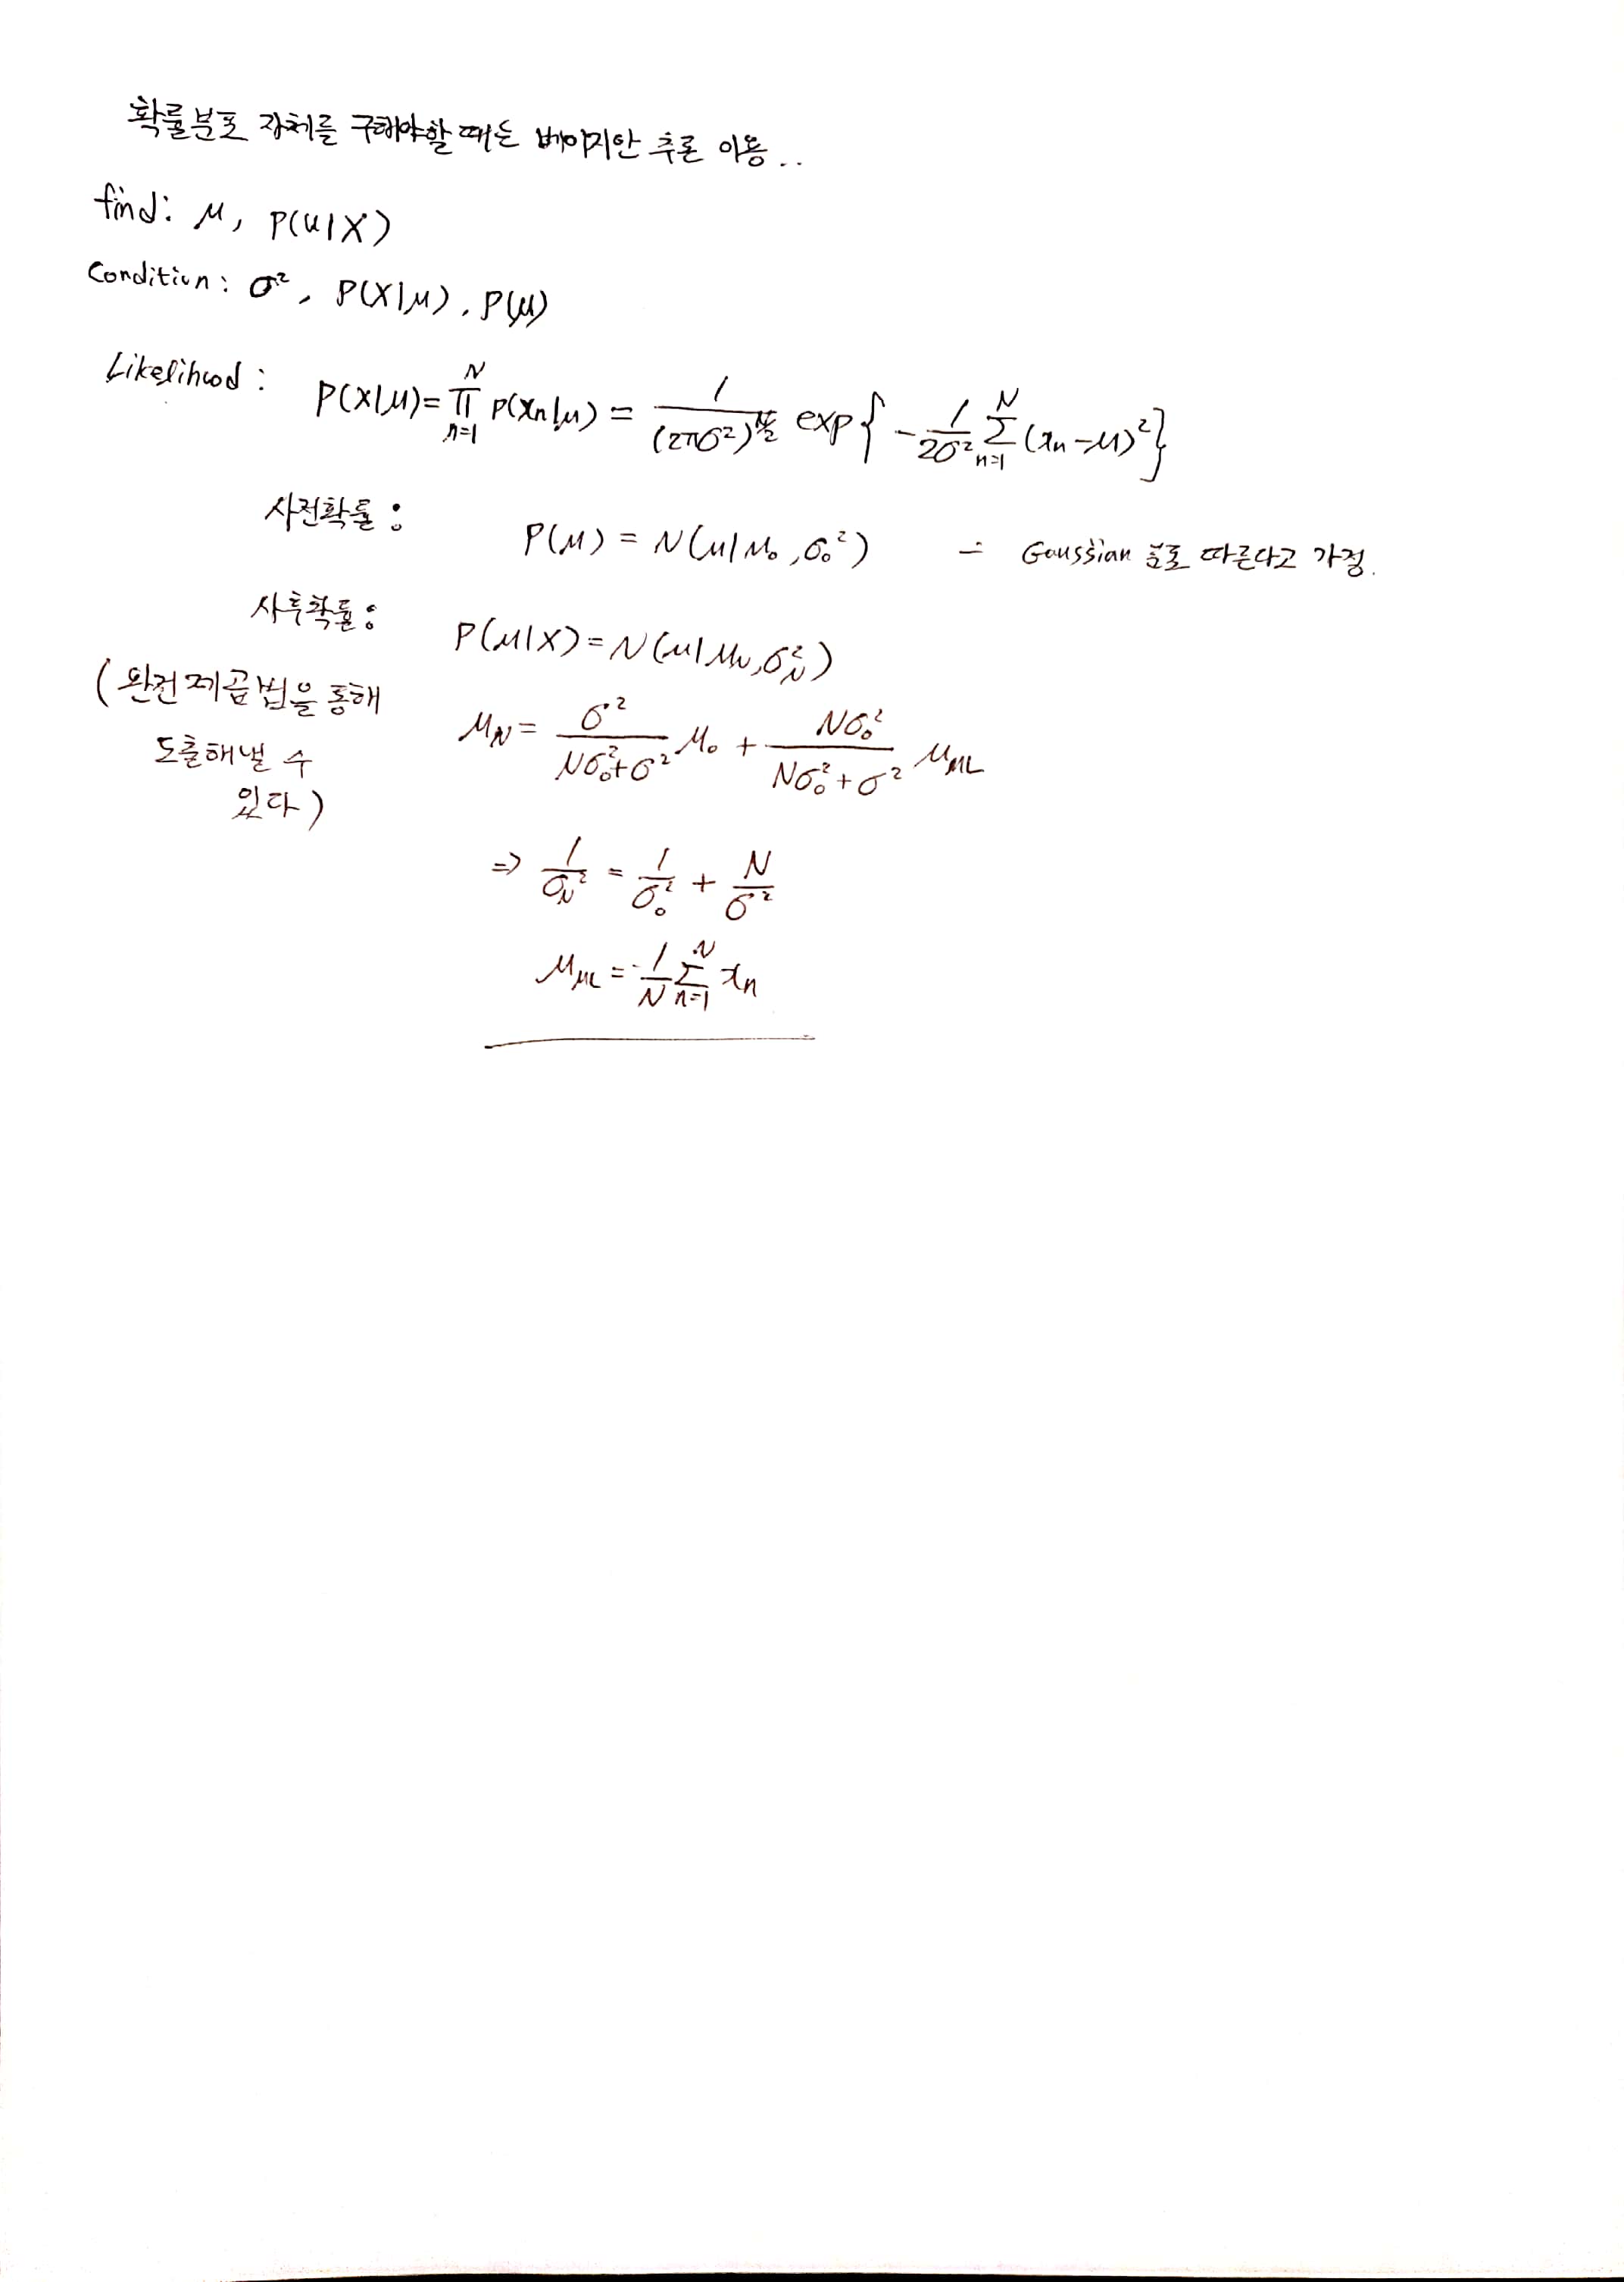 확률분포 자체를 구해야할 때는 베이지안 추론 이용..
find: μ, P(μ|X)
Condition: σ², P(X|μ), P(μ)
Likelihood: P(X|μ)= ∏_{n=1}^{N} P(xn|μ) = 1/(2πσ²)^{N/2} exp{ -1/2σ² ∑_{n=1}^{N} (xn-μ)²}
사전확률: P(μ) = N(μ|μ₀, σ₀²) - Gaussian 분포 따른다고 가정.
사후확률: P(μ|X) = N(μ|μN, σN²)
(완전제곱법을 통해
도출해낼 수
있다)
μN = σ²/(Nσ₀²+σ²) μ₀ + Nσ₀²/(Nσ₀²+σ²) μML
=> 1/σN² = 1/σ₀² + N/σ²
μML = 1/N ∑_{n=1}^{N} xn